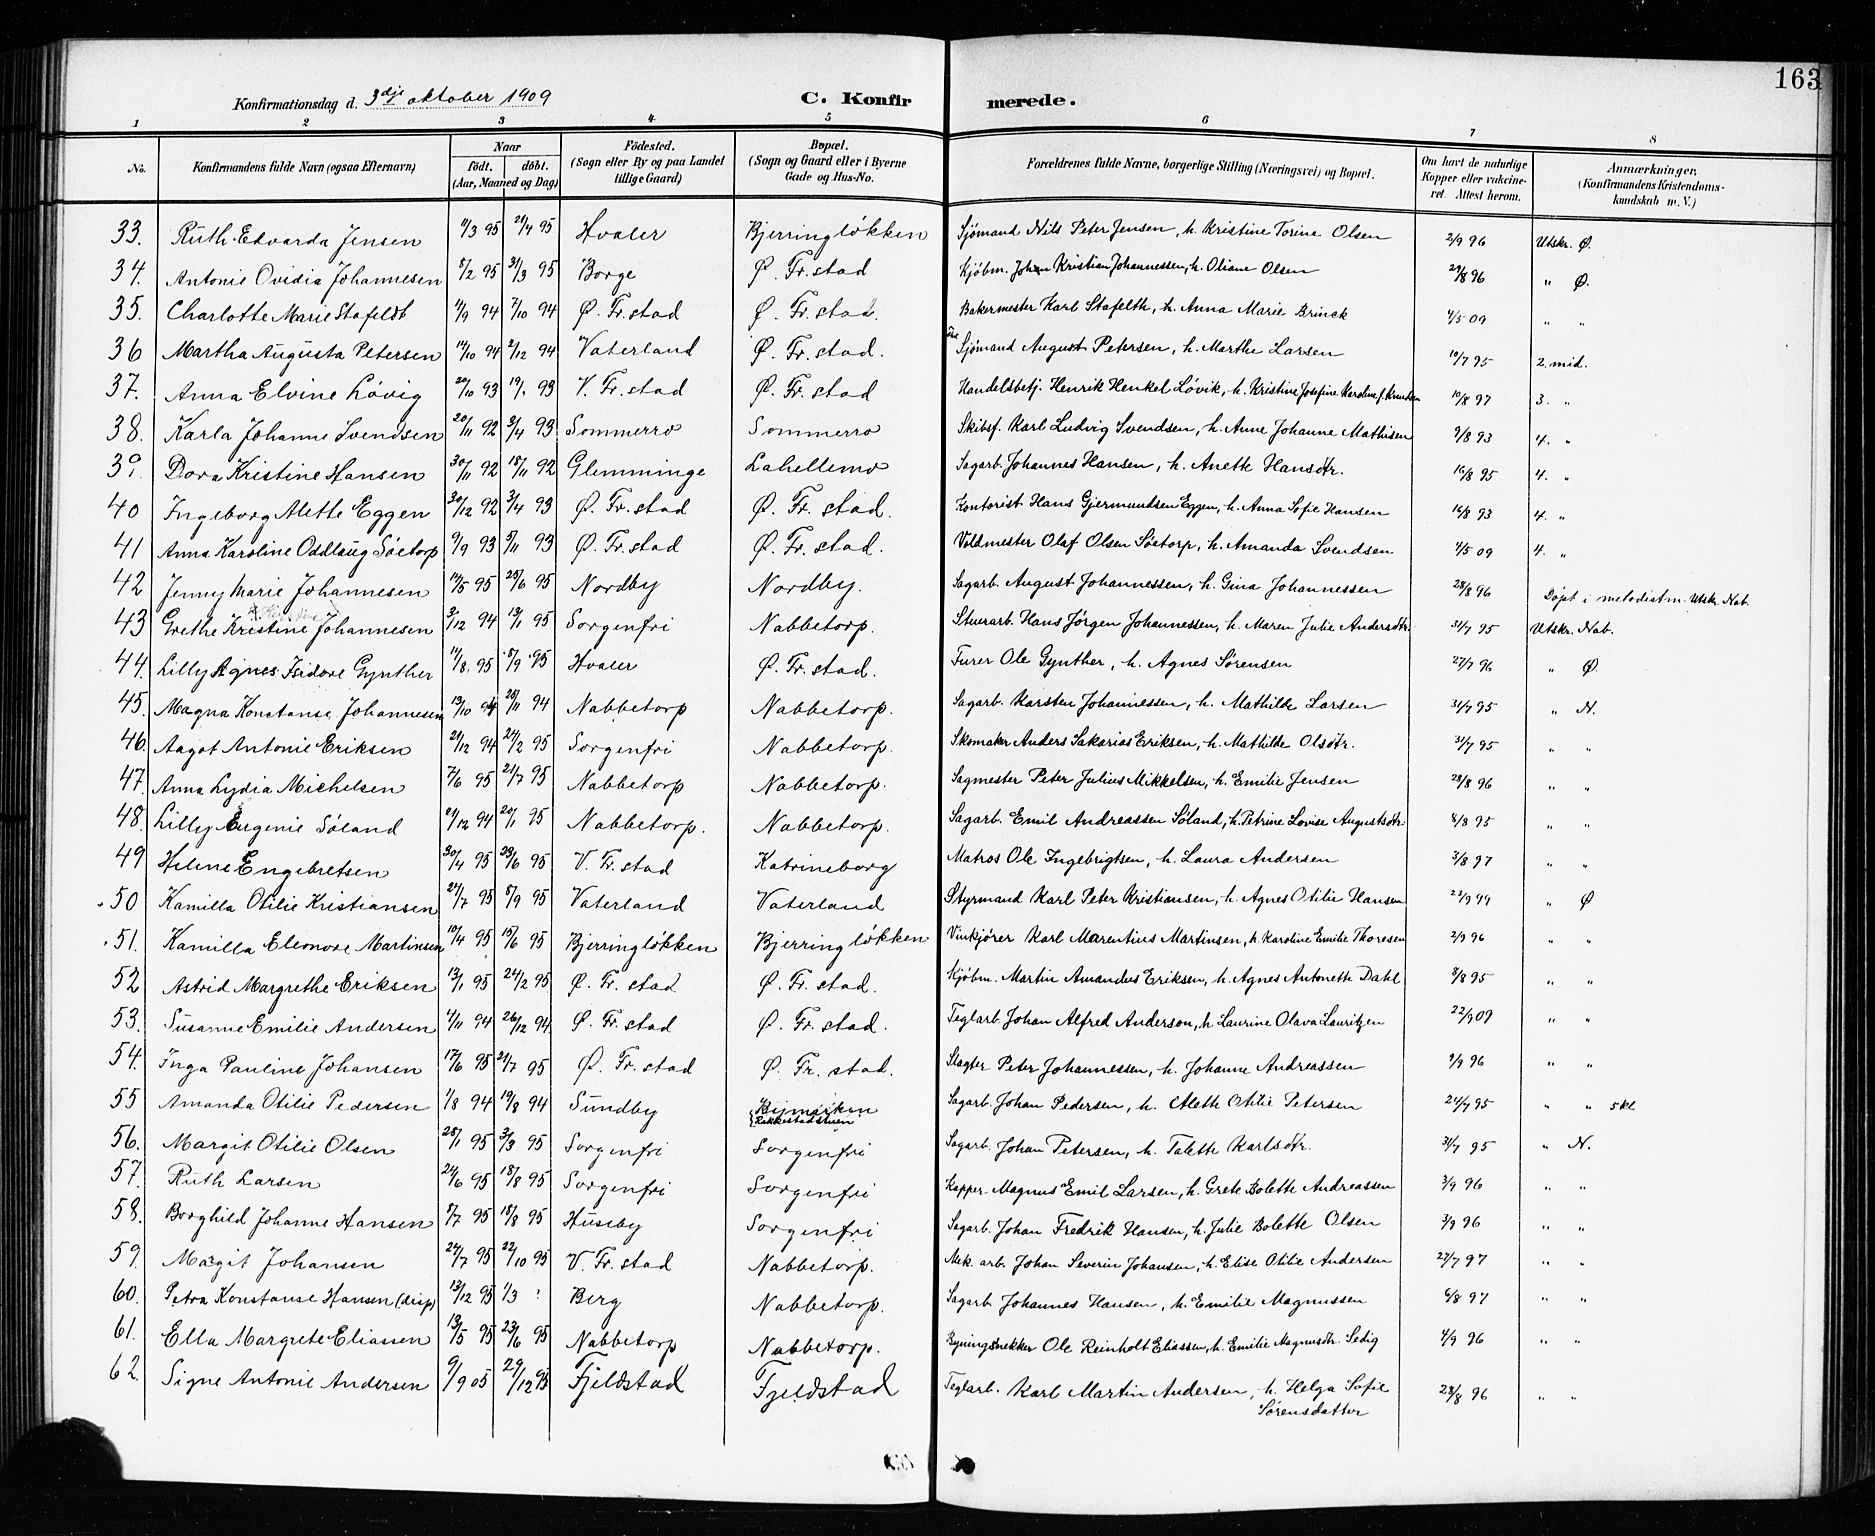 163
Konfirmationsdag d. 3dje oktober 1909 C. Konfirmerede.
1 2 3 4 5 6 7 8
No. Konfirmandens fulde Navn (ogsaa Efternavn) Naar født. døbt. (Aar, Maaned og Dag) Fødested. (Sogn eller By og paa Landet tillige Gaard) Bopæl. (Sogn og Gaard eller i Byerne Gade og Hus-No. Forældrenes fulde Navne, borgerlige Stilling (Næringsvei) og Bopæl. Om havt de naturlige Kopper eller vakcineret. Attest herom. Anmærkninger. (Konfirmandens Kristendomskundskab m. V.)
33. Ruth Edvarda Jensen 11/3 95 21/4 95 Hvaler Bjerringløkken Sjømand Nils Peter Jensen, h. Kristine Torine Olsen 2/9 96 Utskr. Ø.
34. Antonie Ovidia Johannesen 8/2 95 31/3 95 Borge Ø. Fr.stad Kjøbm. Johan Kristian Johannessen, h. Oliane Olsen 29/8 96 " Ø.
35. Charlotte Marie Stafeldt 11/9 94 7/10 94 Ø. Fr.stad Ø. Fr.stad. Bakermester Karl Stafelth, h. Anna Marie Brinck 4/5 09 " "
36 Martha Augusta Petersen 14/10 94 2/12 94 Vaterland Ø. Fr.stad. Sjømand August Petersen, h. Marthe Larsen 10/7 95 2 mid.
37. Anna Elvine Løvig 20/10 93 19/1 93 V. Fr.stad Ø. Fr.stad Handelsbetj. Henrik Henkel Løvik, h. Kristine Josefine Karoline f. Knudsen 10/8 97 3. "
38. Karla Johanne Svendsen 20/11 92 3/4 93 Sommerro Sommerro Skibsf. Karl Ludvig Svendsen, h. Anne Johanne Mathisen 9/8 93 4. "
39. Dora Kristine Hansen 30/11 92 18/11 92 Glemminge Lahellemo Sagarb. Johannes Hansen, h. Anette Hansdtr. 16/8 95 4. "
40 Ingeborg Alette Eggen 30/12 92 3/4 93 Ø. Fr.stad Ø. Fr.stad. Kontorist Hans Gjermundsen Eggen, h. Anna Sofie Hansen 16/8 93 4. "
41 Anna Karoline Oddlaug Søetorp 9/9 93 5/11 93 Ø. Fr.stad Ø. Fr.stad. Voldmester Olaf Olsen Søetorp, h. Amanda Svendsen 4/5 09 4. "
42 Jenny Marie Johannesen 14/5 95 25/6 95 Nordby Nordby. Sagarb. August Johannessen, h. Gina Johannessen 28/8 96 Døpt i metodistm. Utskr. Nab.
43 Grethe Kristine Johannesen 3/12 94 13/1 95 Sorgenfri Nabbetorp. Stuerarb. Hans Jørgen Johannessen, h. Maren Julie Andersdtr. 31/7 95 Utskr. Nab.
44. Lilly Agnes Isidore Gynther 14/8 95 8/9 95 Hvaler Ø. Fr.stad. Furer Ole Gynther, h. Agnes Sørensen 27/7 96 " Ø.
45. Magna Konstanse Johannesen 13/10 94 25/11 94 Nabbetorp Nabbetorp. Sagarb. Karsten Johannessen, h. Mathilde Larsen 31/7 95 " N.
46. Aagot Antonie Eriksen 21/12 94 24/2 95 Sorgenfri Nabbetorp. Skomaker Anders Sakarias Eriksen, h. Mathilde Olsdtr. 31/7 95 " "
47. Anna Lydia Michelsen 7/6 95 21/7 95 Nabbetorp Nabbetorp. Sagmester Peter Julius Mikkelsen, h. Emilie Jensen 28/8 96 " "
48. Lilly Eugenie Søland 21/12 94 20/1 95 Nabbetorp. Nabbetorp. Sagarb. Emil Andreassen Søland, h. Petrine Lovise Augustsdtr. 8/8 95 " "
49 Helene Engebretsen 30/4 95 23/6 95 V. Fr.stad Katrineborg Matros Ole Ingebrigtsen, h. Laura Andersen 3/8 97 " "
50 Kamilla Otilie Kristiansen 24/7 95 8/9 95 Vaterland Vaterland Styrmand Karl Peter Kristiansen, h. Agnes Otilie Hansen 23/9 99 " Ø
51. Kamilla Eleonore Martinsen 10/4 95 15/6 95 Bjerringløkken Bjerringløkken Vinkjører Karl Marentius Martinsen, h. Karoline Emilie Thoresen 2/9 96 " "
52 Astrid Margrethe Eriksen 13/1 95 24/2 95 Ø. Fr. stad Ø. Fr. stad. Kjøbm. Martin Amandus Eriksen, h. Agnes Antonette Dahl 8/8 95 " "
53. Susanne Emilie Andersen 4/11 94 26/12 94 Ø. Fr.stad Ø. Fr.stad. Teglarb. Johan Alfred Anderson, h. Laurine Olava Lauritzen 22/9 09 " "
54. Inga Pauline Johansen 17/6 95 21/7 95 Ø. Fr.stad Ø. Fr. stad. Slagter Peter Johannessen, h. Johanne Andreassen 9/9 96 " "
55 Amanda Otilie Pedersen 1/8 94 19/8 94 Sundby Bjmarken Rakkestadstuen Sagarb. Johan Pedersen, h. Alette Otilie Petersen 24/7 95 " " 5kl
56. Margit Otilie Olsen 28/1 95 3/3 95 Sorgenfri Sorgenfri Sagarb. Johan Petersen, h. Talette Karlsdtr. 31/7 95 " N.
57. Ruth Larsen 24/6 95 18/8 95 Sorgenfri Sorgenfri Kopper Magnus Emil Larsen, h. Grete Bolette Andreassen 3/9 96 " "
58. Borghild Johanne Hansen 5/7 95 18/8 95 Huseby Sorgenfri Sagarb. Johan Fredrik Hansen, h. Julie Bolette Olsen 3/9 96 " "
59. Margit Johansen 24/7 95 22/10 95 V. Fr.stad Nabbetorp. Mek. arb. Johan Severin Johansen, h. Elise Otilie Andersen 27/7 97 " "
60. Petra Konstanse Hansen (disp) 12/12 95 1/3 Berg Nabbetorp. Sagarb. Johannes Hansen, h. Emilie Magnussen 6/8 97 " "
61. Ella Margrete Eliassen 13/5 95 23/6 95 Nabbetorp Nabbetorp. Bygningssnekker Ole Reinholt Eliassen, h. Emilie Magnusdtr. Sedig 4/9 96 " "
62. Signe Antonie Andersen 9/9 05 29/12 95 Fjeldstad Fjeldstad Teglarb. Karl Martin Andersen, h. Helga Sofie Sørensdatter 28/8 96 " "